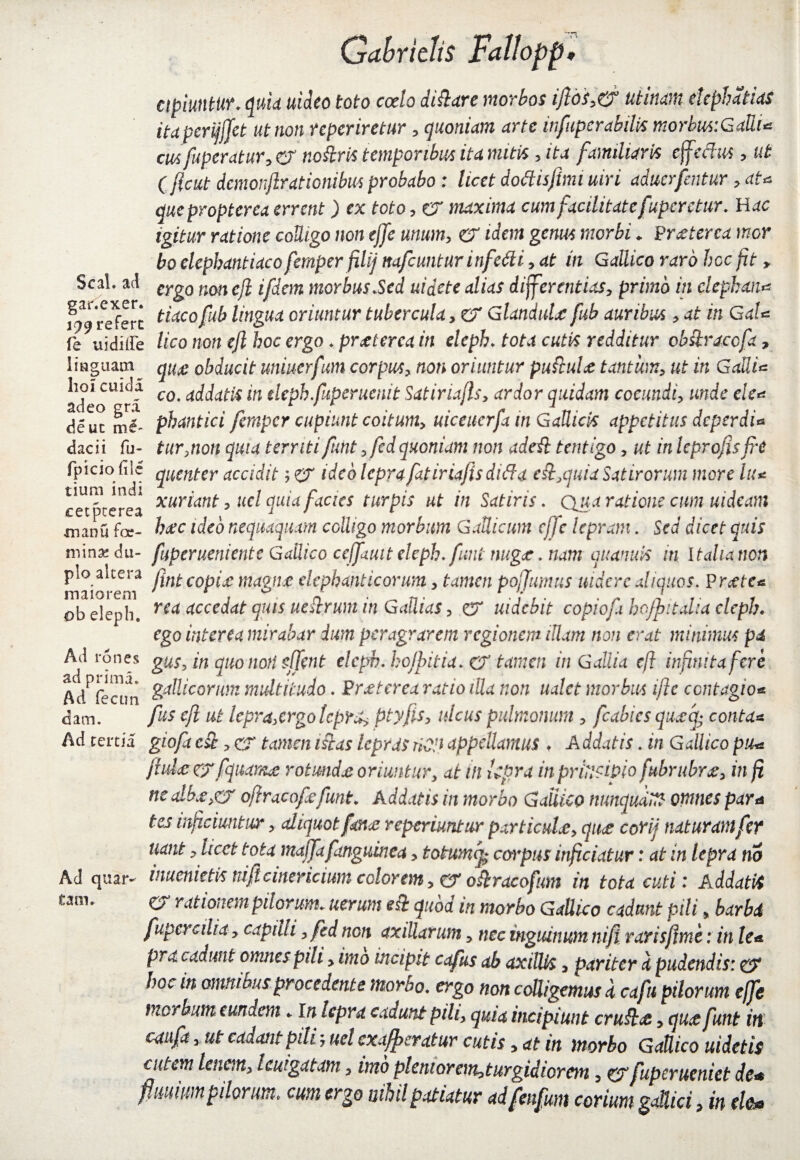 Gabrielis Fallopp.
cipiuntur. quia uideo toto cœlo distare morbos istos, & utinam elephātias
ita perijsset ut non reperiretur, quoniam arte insuperabilis morbus: Galli-
cus superatur, & nostris temporibus ita mitis, ita familiaris effectus, ut
(sicut demonstrationibus probabo: licet doctissimi uiri aduersentur, at-
que propterea errent) ex toto, & maxima cum facilitate superetur. Hac
igitur ratione colligo non esse unum, & idem genus morbi. Præterea mor
bo elephantiaco semper filij nascuntur infecti, at in Gallico raró hoc fit,
ergo non est isdem morbus. Sed uidete alias differentias, primò in elephan-
tiaco sub lingua oriuntur tubercula, & Glandulæ sub auribus, at in Gal-
lico non est hoc ergo. præterea in eleph. tota cutis redditur obstracosa,
quæ obducit uniuersum corpus, non oriuntur pustulæ tantùm, ut in Galli-
co. addatis in eleph. superuenit Satiriasis, ardor quidam coeundi, unde ele-
phantici semper cupiunt coitum, uiceuersa in Gallicis appetitus deperdi-
tur, non quia territi sunt, sed quoniam non adest tentigo, ut in leprosis fre
quenter accidit; & ideò lepra satiriasis dicta est, quia Satirorum more lu-
xuriant, uel quia facies turpis ut in Satiris. Qua ratione cum uideam
hæc ideò nequaquam colligo morbum Gallicum esse lepram. Sed dicet quis
superueniente Gallico cessauit eleph. sunt nugæ. nam quamuis in Italia non
sint copiæ magnæ elephanticorum, tamen possumus uidere aliquos. Præte-
rea accedat quis uestrum in Gallias, & uidebit copiosa hospitalia eleph.
ego interea mirabar dum peragrarem regionem illam non erat minimus pa
gus, in quo non essent eleph. hospitia. & tamen in Gallia est infinita ferè
gallicorum multitudo. Præterea ratio illa non ualet morbus iste contagio-
sus est ut lepra, ergo lepra, ptysis, ulcus pulmonum, scabies quæq; conta-
giosa est, & tamen istas lepras non appellamus. Addatis. in Gallico pu-
stulæ & squamæ rotundæ oriuntur, at in lepra in principio subrubræ, in fi
ne albæ, & ostracosæ sunt. Addatis in morbo Gallico nunquàm omnes par-
tes inficiuntur, aliquot sanæ reperiuntur particulæ, quæ corij naturam ser
uant, licet tota massa sanguinea, totumq; corpus inficiatur: at in lepra nō
inuenietis nisi cinericium colorem, & ostracosum in tota cuti: Addatis
& rationem pilorum. uerum est quòd in morbo Gallico cadunt pili, barba
supercilia, capilli, sed non axillarum, nec inguinum nisi rarissimè: in le-
pra cadunt omnes pili, imò incipit casus ab axillis, pariter à pudendis: &
hoc in omnibus procedente morbo. ergo non colligemus à casu pilorum esse
morbum eundem. In lepra cadunt pili, quia incipiunt crustæ, quæ sunt in
causa, ut cadant pili; uel exasperatur cutis, at in morbo Gallico uidetis
cutem lenem, leuigatam, imò pleniorem, turgidiorem, & superueniet de-
fluuium pilorum. cum ergo nihil patiatur ad sensum corium gallici, in ele-
Scal. ad
gar. exer.
199 refert
se uidisse
linguam
hoī cuidā
adeo grā
dē ut mē-
dacii su-
spicio filē
tium indi
cet pterea
manū fœ-
minæ du-
plo altera
maiorem
ob eleph.
Ad rōnes
ad primā.
Ad secun
dam.
Ad tertiā
Ad quar-
tam.